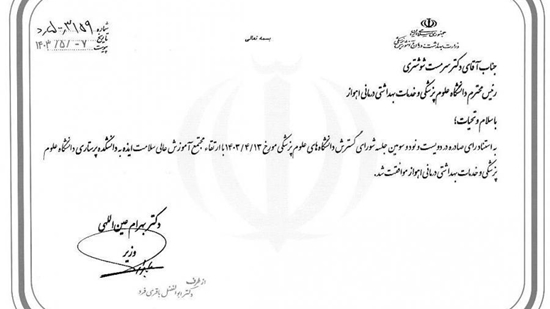 بسمه تعالی
جمهوری اسلامی ایران
وزارت بهداشت، درمان و آموزش پزشکی
شماره
تاریخ ۱۴۰۳/۵/۰۷
پیوست
جناب آقای دکتر سرمست شوشتری
رئیس محترم دانشگاه علوم پزشکی و خدمات بهداشتی درمانی اهواز
با سلام و تحیات؛
به استناد رای صادره در دویست و نود و سومین جلسه شورای گسترش دانشگاه‌های علوم پزشکی مورخ ۱۴۰۳/۴/۱۳ با ارتقاء مجتمع آموزش عالی سلامت ایذه به دانشکده پرستاری دانشگاه علوم
پزشکی و خدمات بهداشتی درمانی اهواز موافقت شد.
دکتر بهرام عین اللهی
وزیر
از طرف
دکتر ابوالفضل باقری فرد